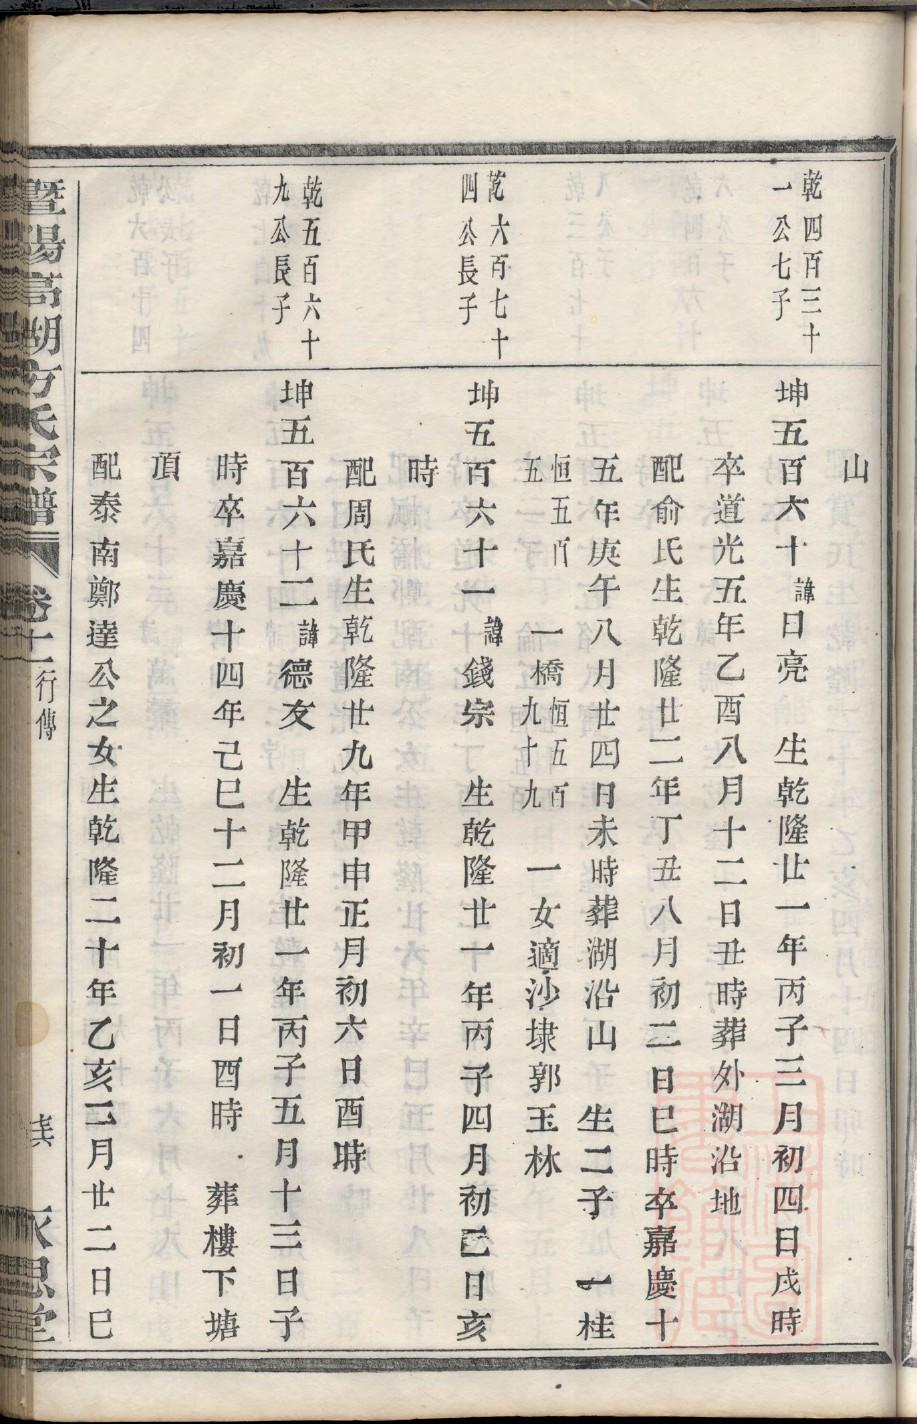 山
乾四百三十
一公七子
坤五百六十諱日亮　生乾隆廿一年丙子三月初四日戌時
卒道光五年乙酉八月十二日丑時葬外湖沿地
配俞氏生乾隆廿二年丁丑八月初二日巳時卒嘉慶十
五年庚午八月廿四日未時葬湖沿山　生二子　一桂
恒五百
五
一橋恒五百
九十九
一女適沙埭郭玉林
乾六百七十
四公長子
坤五百六十一諱錢宗　生乾隆廿一年丙子四月初
日亥
時
配周氏生乾隆廿九年甲申正月初六日酉時
乾五百六十
九公長子
坤五百六十二諱德友　生乾隆廿一年丙子五月十三日子
時卒嘉慶十四年己巳十二月初一日酉時　葬樓下塘
頂
配泰南鄭達公之女生乾隆二十年乙亥二月廿二日巳
暨陽高湖方氏宗譜
卷十一
行傳
永思堂